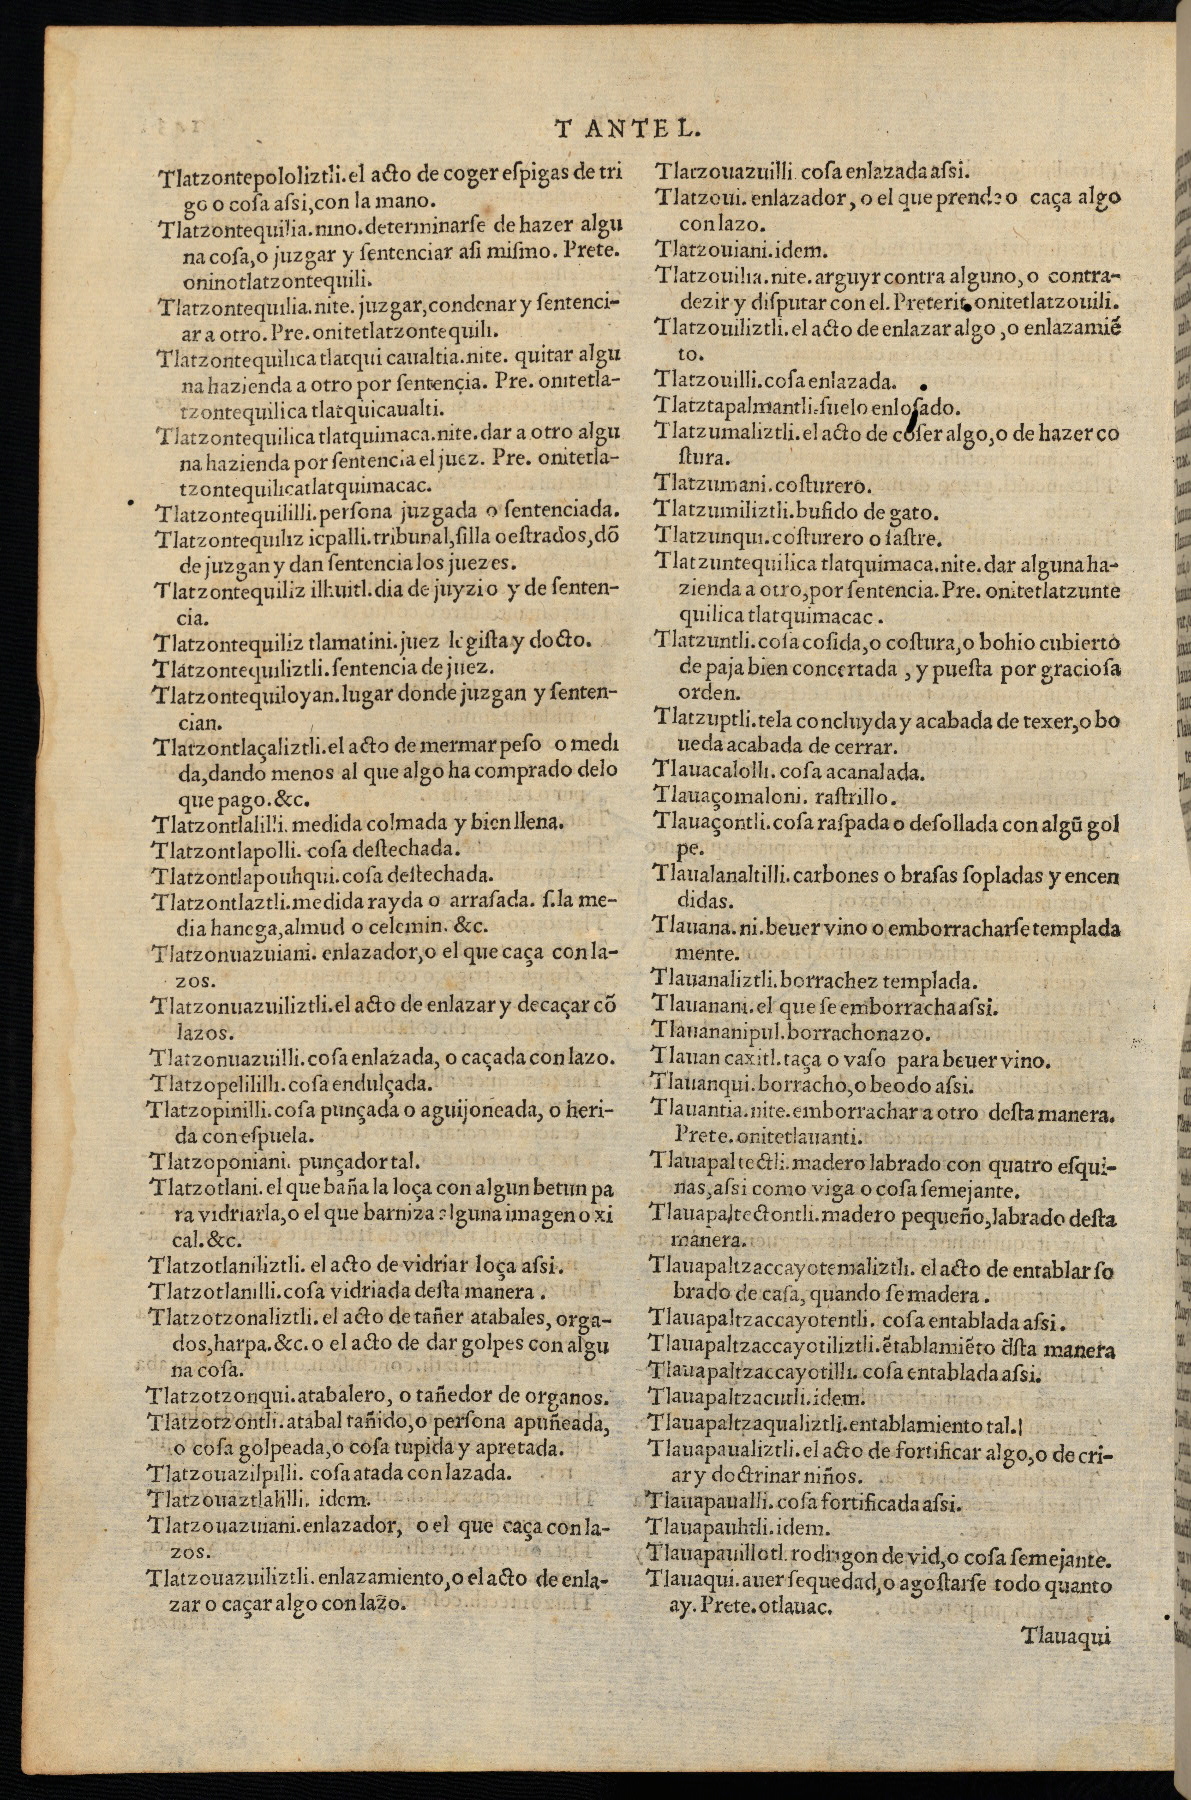 T ANTE L.
Tlatzontepololiztli.el acto de coger eſpigas de tri
go o coſa aſsi,con la mano.
Tlatzontequilia.nino.determinarſe de hazer algu
na coſa,o juzgar y ſentenciar aſi miſmo. Prete.
oninotlatzontequili.
Tlatzontequilia.nite. juzgar,condenar y ſentenci-
ar a otro. Pre. onitetlatzontequili.
Tlatzontequilica tlatqui caualtia.nite. quitar algu
na hazienda a otro por ſentencia. Pre. onitetla-
tzontequilica tlatquicaualti.
Tlatzontequilica tlatquimaca.nite.dar a otro algu
na hazienda por ſentencia el juez. Pre. onitetla-
tzontequilicatlatquimacac.
Tlatzontequililli.perſona juzgada o ſentenciada.
Tlatzontequiliz icpalli.tribunal,ſilla o eſtrados,dõ
de juzgan y dan ſentencia los juezes.
Tlatzontequiliz ilhuitl.dia de juyzio y de ſenten-
cia.
Tlatzontequiliz tlamatini.juez legiſta y docto.
Tlatzontequiliztli.ſentencia de juez.
Tlatzontequiloyan.lugar donde juzgan y ſenten-
cian.
Tlatzontlaçaliztli.el acto de mermar peſo o medi
da,dando menos al que algo ha comprado delo
que pago.&c.
Tlatzontlalilli. medida colmada y bien llena.
Tlatzontlapolli. coſa deſtechada.
Tlatzontlapouhqui.coſa deſtechada.
Tlatzontlaztli.medida rayda o arraſada. ſ.la me-
dia hanega,almud o celemin. &c.
Tlatzonuazuiani. enlazador,o el que caça con la-
zos.
Tlatzonuazuiliztli.el acto de enlazar y decaçar cõ
lazos.
Tlatzonuazuilli.coſa enlazada, o caçada con lazo.
Tlatzopelililli.coſa endulçada.
Tlatzopinilli.coſa punçada o aguijoneada, o heri-
da con eſpuela.
Tlatzoponiani. punçador tal.
Tlatzotlani.el que baña la loça con algun betun pa
ra vidriarla,o el que barniza alguna imagen o xi
cal.&c.
Tlatzotlaniliztli. el acto de vidriar loça aſsi.
Tlatzotlanilli.coſa vidriada deſta manera .
Tlatzotzonaliztli.el acto de tañer atabales, orga-
dos,harpa.&c.o el acto de dar golpes con algu
na coſa.
Tlatzotzonqui.atabalero, o tañedor de organos.
Tlatzotzontli.atabal tañido,o perſona apuñeada,
o coſa golpeada,o coſa tupida y apretada.
Tlatzouazilpilli. coſa atada con lazada.
Tlatzouaztlalilli. idem.
Tlatzouazuiani.enlazador, o el que caça con la-
zos.
Tlatzouazuiliztli.enlazamiento,o el acto de enla-
zar o caçar algo con lazo.
Tlatzouazuilli coſa enlazada aſsi.
Tlatzoui. enlazador, o el que prende o caça algo
con lazo.
Tlatzouiani.idem.
Tlatzouilia.nite.arguyr contra alguno,o contra-
dezir y diſputar con el.Preterit.onitetlatzouili.
Tlatzouiliztli.el acto de enlazar algo ,o enlazamiẽ
to.
Tlatzouilli.coſa enlazada.
Tlatztapalmantli.ſuelo enloſado.
Tlatzumaliztli.el acto de coſer algo,o de hazer co
ſtura.
Tlatzumani.coſturero.
Tlatzumiliztli.bufido de gato.
Tlatzunqui.coſturero o ſaſtre.
Tlatzuntequilica tlatquimaca.nite.dar alguna ha-
zienda a otro,por ſentencia. Pre. onitetlatzunte
quilica tlatquimacac .
Tlatzuntli.coſa coſida,o coſtura,o bohio cubierto
de paja bien concertada , y pueſta por gracioſa
orden.
Tlatzuptli.tela concluyda y acabada de texer,o bo
ueda acabada de cerrar.
Tlauacalolli. coſa acanalada.
Tlauaçomaloni. raſtrillo.
Tlauaçontli.coſa raſpada o deſollada con algũ gol
pe.
Tlaualanaltilli.carbones o braſas ſopladas y encen
didas.
Tlauana.ni.beuer vino o emborracharſe templada
mente.
Tlauanaliztli.borrachez templada.
Tlauanani.el que ſe emborracha aſsi.
Tlauananipul.borrachonazo.
Tlauan caxitl.taça o vaſo para beuer vino.
Tlauanqui.borracho,o beodo aſsi.
Tlauantia.nite.emborrachar a otro deſta manera.
Prete.onitetlauanti.
Tlauapaltectli.madero labrado con quatro eſqui-
nas,aſsi como viga o coſa ſemejante.
Tlauapaltectontli.madero pequeño,labrado deſta
manera.
Tlauapaltzaccayotemaliztli. el acto de entablar ſo
brado de caſa, quando ſe madera .
Tlauapaltzaccayotentli. coſa entablada aſsi .
Tlauapaltzaccayotiliztli.ẽtablamiẽto d̃ſta manera
Tlauapaltzaccayotilli. coſa entablada aſsi.
Tlauapaltzacutli.idem.
Tlauapaltzaqualiztli.entablamiento tal.
Tlauapaualiztli.el acto de fortificar algo,o de cri-
ar y doctrinar niños.
Tlauapaualli.coſa fortificada aſsi.
Tlauapauhtli.idem.
Tlauapauillotl.rodrigon de vid,o coſa ſemejante.
Tlauaqui.auer ſequedad,o agoſtarſe todo quanto
ay.Prete.otlauac.
Tlauaqui